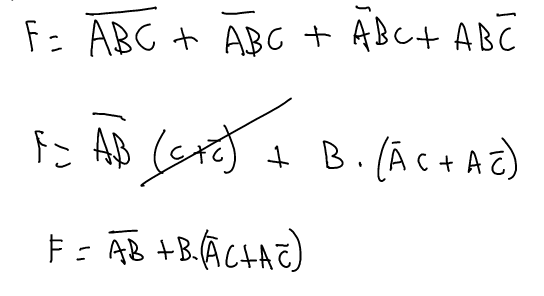 F = \overline{ABC} + \overline{AB}C + \bar{A}BC + AB\bar{C}
F = \overline{AB} (C+\bar{C}) + B . (\bar{A}C + A\bar{C})
F = \overline{AB} + B.(\bar{A}C+A\bar{C})